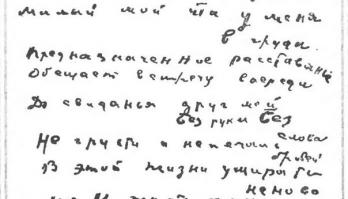 милый мой ты у меня
в груди.
Предназначенное расставанье
Обещает встречу впереди
До свиданья друг мой
без руки без
слова
Не грусти и не печаль
бровей
В этой жизни умирать
не ново